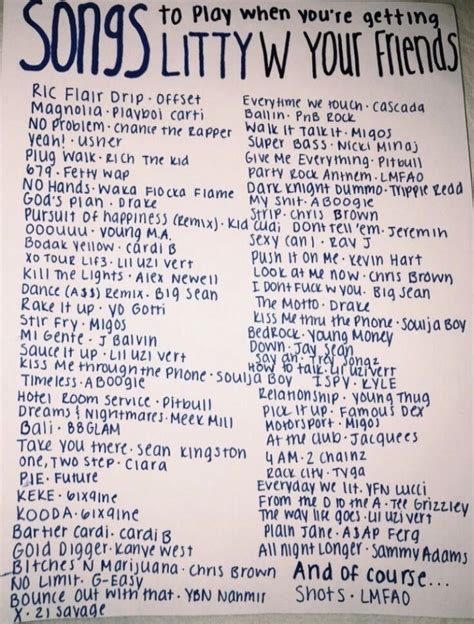 SONGS to Play when you're getting
LITTY W YOUR Friends
RIC Flair Drip · OFFSET
Magnolia · Playboi carti
NO Problem · chance the Rapper
Yeah! · usher
Plug Walk · Rich The Kid
679 · Fetty Wap
NO Hands · Waka Flocka Flame
God's Plan · Drake
Pursuit of happiness (Remix) · Kid cudi
OOOUUU · Young M.A.
Bodak Yellow · cardi B
XO TOUR LIF3 · LIL UZI vert
Kill The Lights · Alex Newell
Dance (A$$) Remix · Big Sean
Rake It up · Yo Gotti
Stir Fry · Migos
Mi Gente · J Balvin
Sauce it up · Lil uzi vert
Kiss Me through the Phone · Soulja Boy
Timeless · A Boogie
Hotel Room Service · Pitbull
Dreams & Nightmares · Meek Mill
Bali · BBGLAM
Take you there · Sean Kingston
one, Two Step · Ciara
PIE · Future
KEKE · 6ix9ine
KOODA · 6ix9ine
Bartier Cardi · cardi B
Gold Digger · Kanye west
Bitches N Marijuana · Chris Brown
NO Limit · G-Easy
Bounce Out with that · YBN Nahmir
X · 21 Savage
Everytime we touch · Cascada
Ballin · PnB Rock
Walk It Talk it · Migos
Super Bass · Nicki Minaj
Give Me Everything · Pitbull
Party Rock Anthem · LMFAO
Dark Knight Dummo · Trippie Read
My Shit · A Boogie
Strip · Chris Brown
Dont Tell 'em · Jeremih
Sexy can I · Ray J
Push It on Me · Kevin Hart
Look at Me now · Chris Brown
I Dont Fuck w You · Big Sean
The Motto · Drake
Kiss Me thru the Phone · Soulja Boy
Bedrock · Young Money
Down · Jay Sean
say ah · Trey Songz
How to talk · Lil uzi vert
ISPY · KYLE
Relationship · Young Thug
Pick It up · Famous Dex
Motorsport · Migos
At the club · Jacquees
4 AM · 2 Chainz
Rack city · Tyga
Everyday we lit · YFN Lucci
From the D to the A · Tee Grizzley
The way life goes · Lil uzi vert
Plain Jane · A$AP Ferg
All night Longer · Sammy Adams
And of course...
Shots · LMFAO